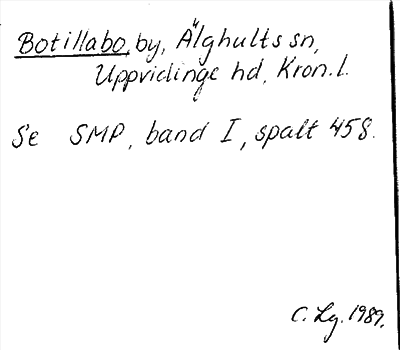 Botillabo, by, Älghults sn,
Uppvidinge hd, Kron.l.
Se SMP, band I, spalt 458.
C. Lg. 1989.